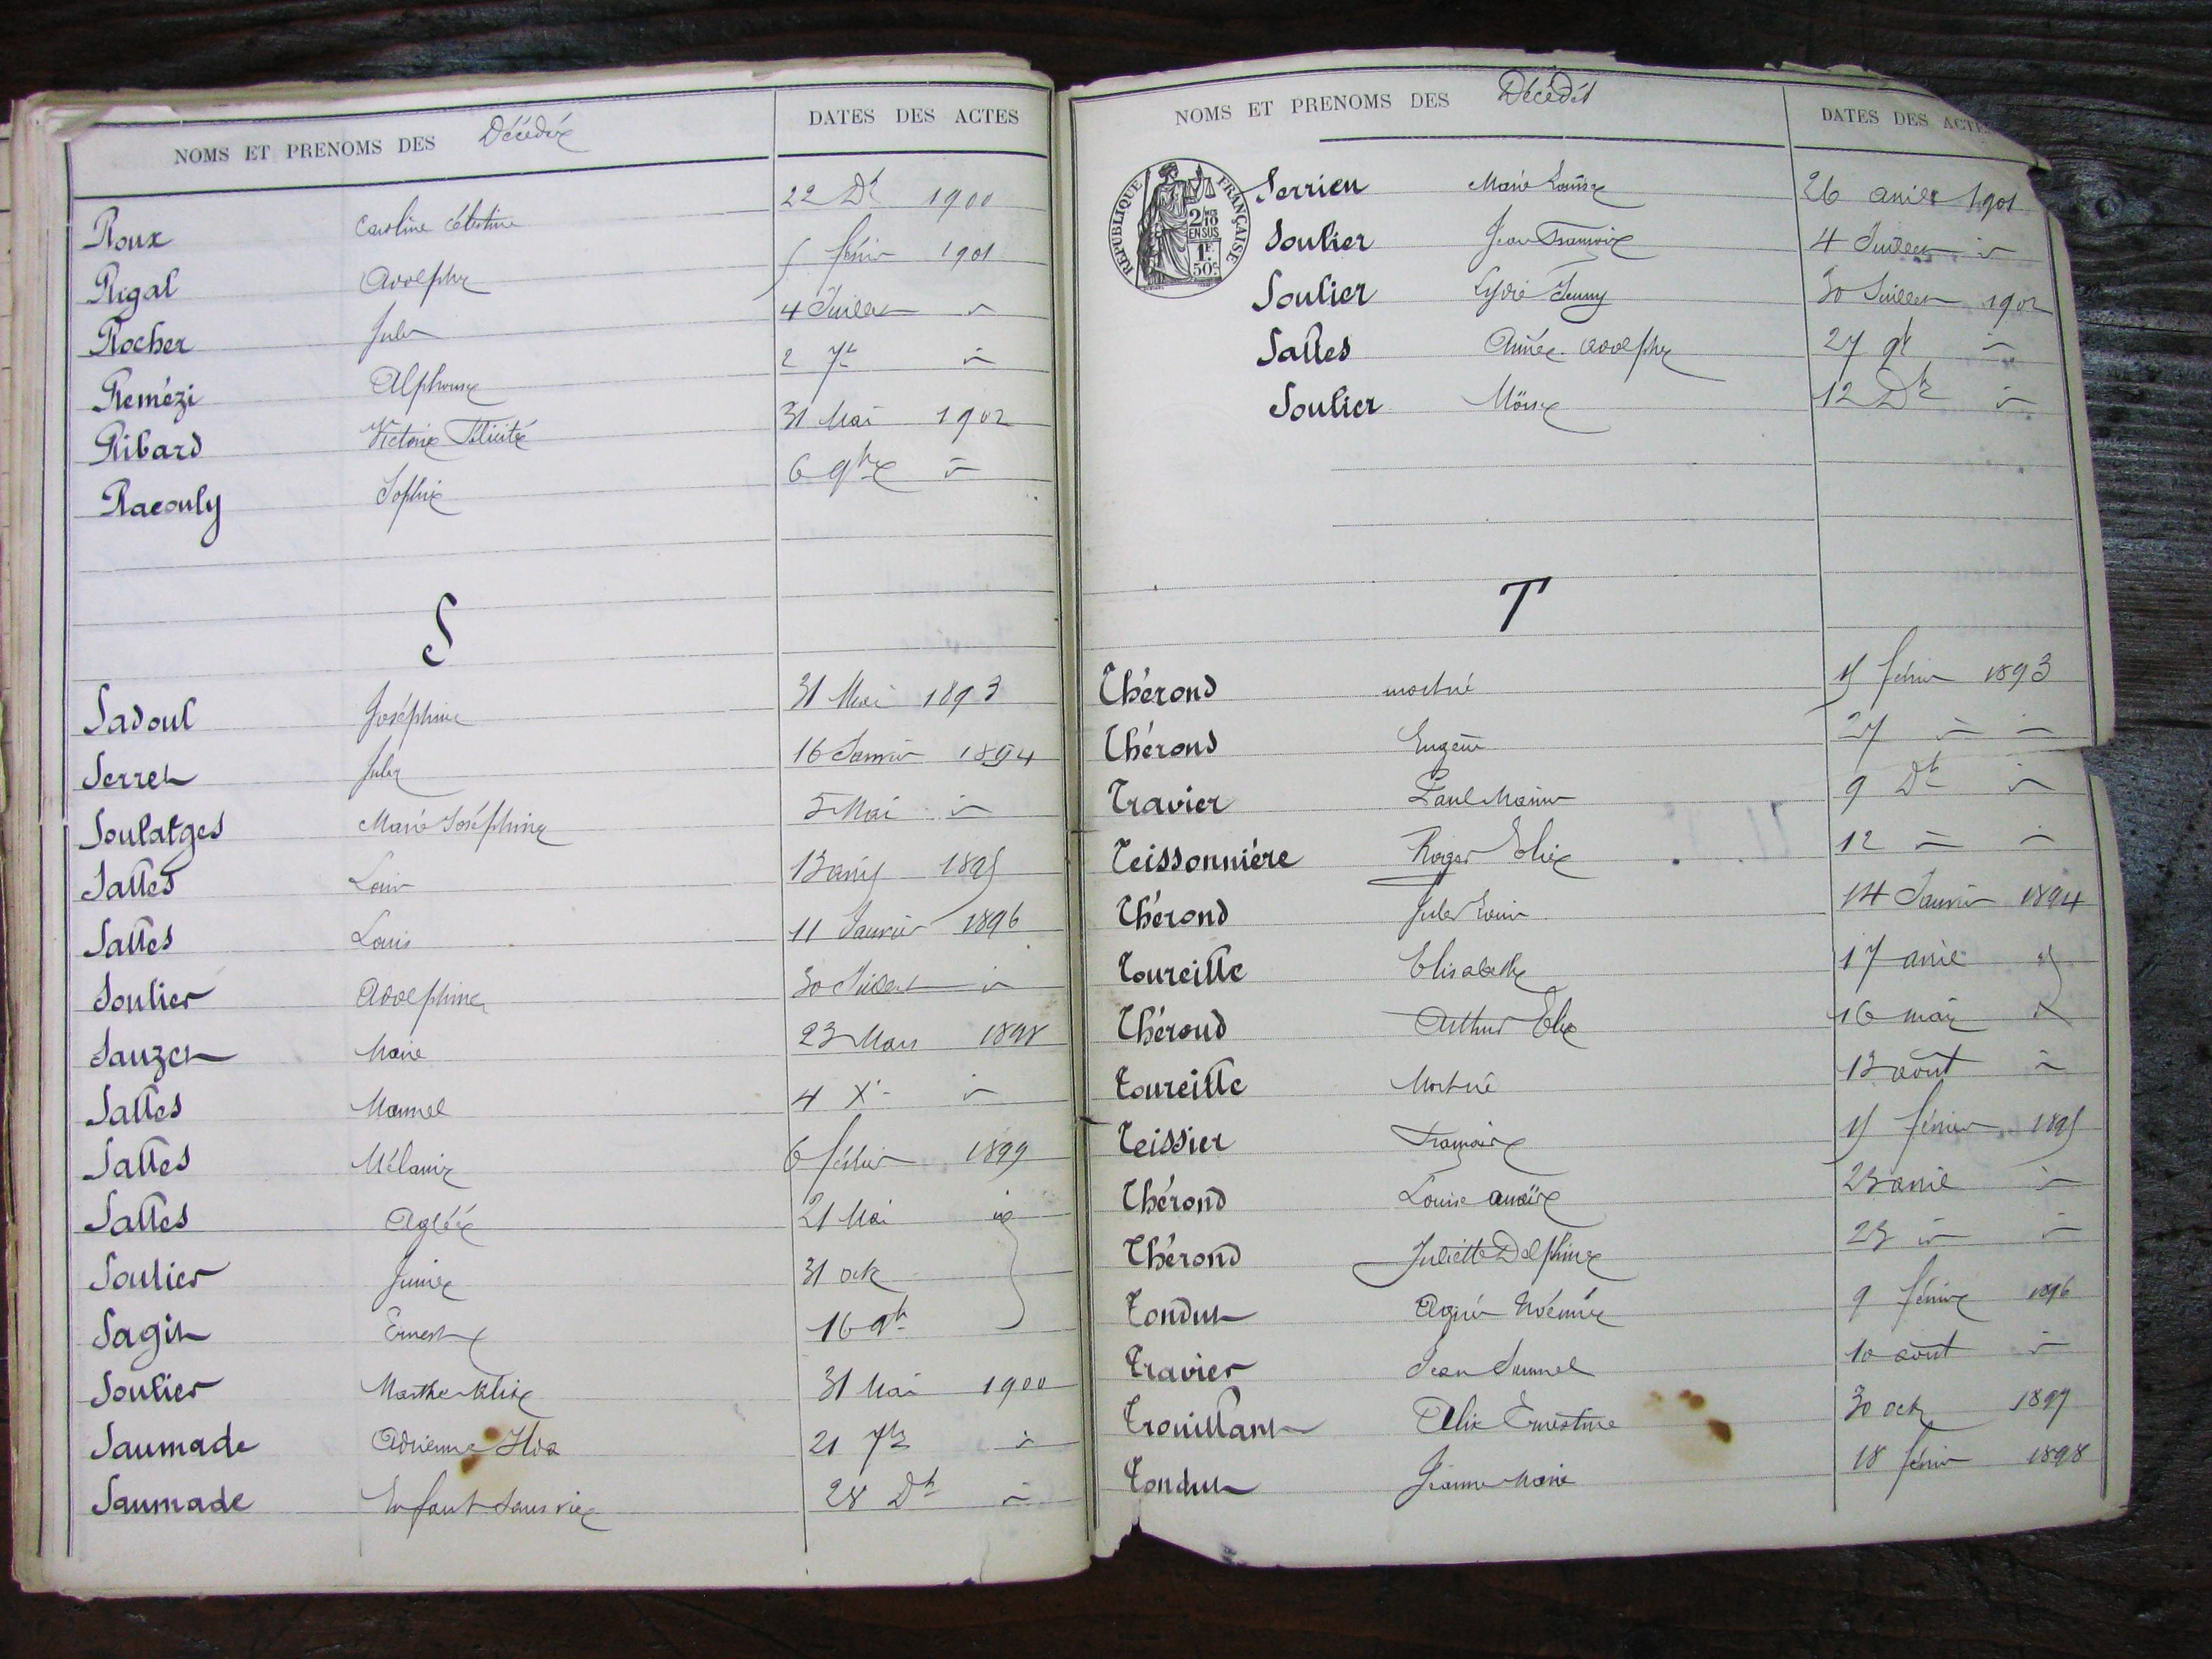 NOMS ET PRENOMS DES Décédés DATES DES ACTES
Roux Caroline Célestine 22 Dbre 1900
Rigal Adolphe 5 février 1901
Rocher Jules 4 Juillet id
Remézi Alphonse 2 7bre id
Ribard Victorie Félicité 31 Mai 1902
Racouly Sophie 6 9bre id
S
Sadoul Joséphine 31 Mai 1893
Serret Jules 16 Janvier 1894
Soulatges Marie Joséphine 5 Mai id
Salles Louis 13 1895
Salles Louis 11 Janvier 1896
Soulier Adolphine 30 Juillet id
Sauzet Marie 23 Mars 1898
Salles 4 Xbre id
Salles Mélanie 6 février 1899
Salles Aglaé 21 Mai id
Soulier 31 oct
Sagit Ernest 16 9bre
Soulier Marthe 31 Mai 1900
Saumade Adrienne 21 7bre id
Saumade Enfant sans vie 28 Dbre id
NOMS ET PRENOMS DES Décédés DATES DES ACTES
RÉPUBLIQUE FRANÇAISE
2/10 EN SUS
1F. 50c
Serrien Marie Louise 26 1901
Soulier Jean François 4 Juillet id
Soulier Lydie Jenny 30 Juillet 1902
Salles Aimée Adolphe 27 9bre id
Soulier Möise 12 Dbre id
T
Thérond mort né 15 février 1893
Thérond Eugène 27 id id
Travier Paul Marius 9 Dbre id
Teissonnière Roger Elie 12 id id
Thérond Jules Louis 14 Janvier 1894
Toureille Elisabeth 17 avril id
Thérond Arthur Elie 16 mai id
Toureille Mort né 13 août id
Teissier François 15 février 1895
Thérond Louise Anaïs 23 avril id
Thérond Juliette Delphine 23 id id
Tondut Noémie 9 février 1896
Travier Jean Samuel 10 août id
Trouillard Alix Ernestine 30 oct 1897
Tondut Jeanne Marie 18 février 1898